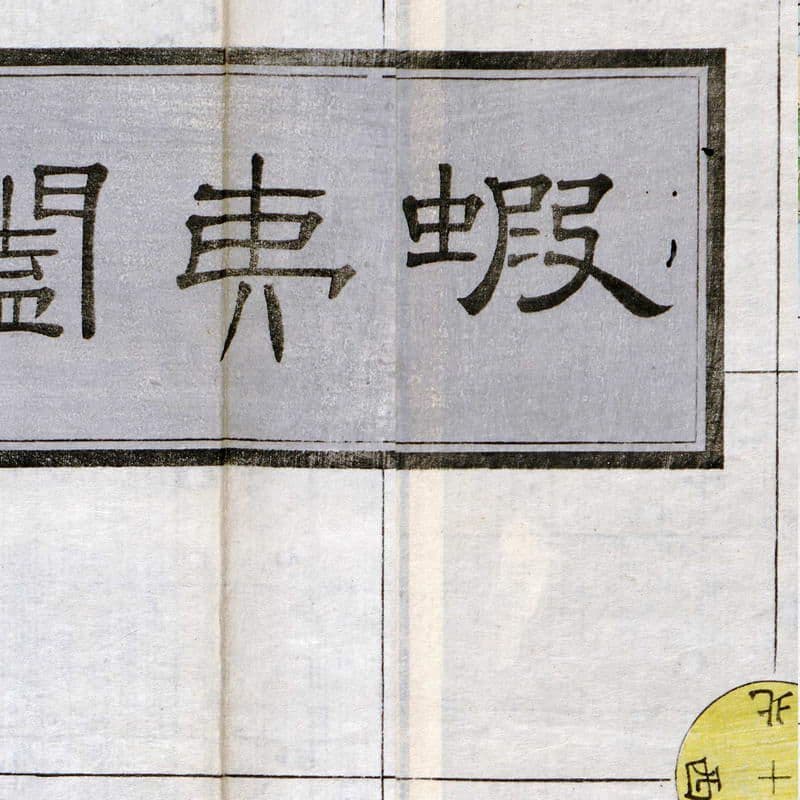 蝦夷闔
北
西